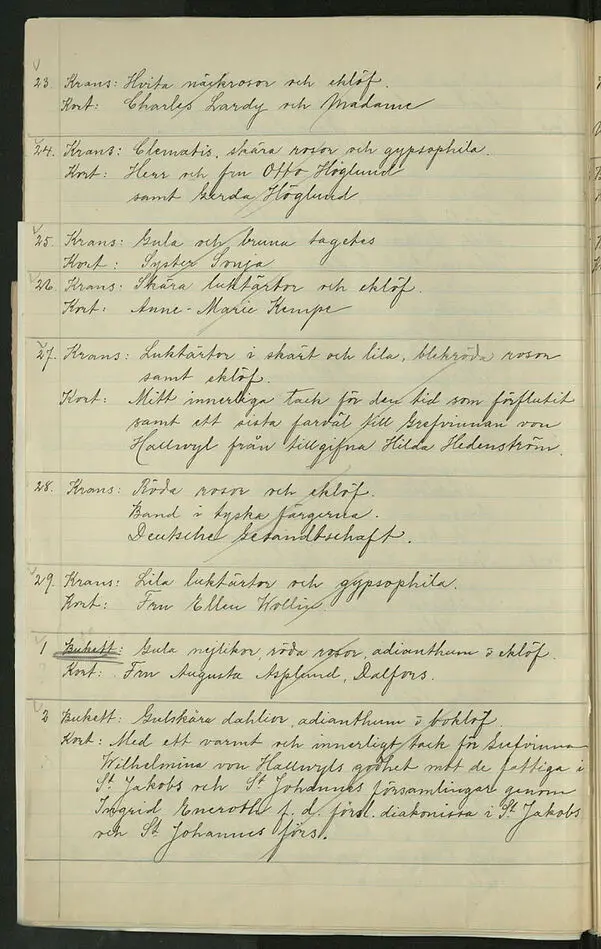 23. Krans: Hvita näckrosor och eklöf.
Kort: Charles Lardy och Madame
24. Krans: Clematis, skära rosor och gypsophila.
Kort: Herr och fru Otto Höglund
samt Gerda Höglund
25. Krans: Gula och bruna tagetes
Kort: Syster Sonja
26. Krans: Skära luktärtor och eklöf.
Kort: Anne-Marie Kempe
27. Krans: Luktärtor i skärt och lila, blekröda rosor
samt eklöf.
Kort: Mitt innerliga tack för den tid som förflutit
samt ett sista farväl till Grefvinnan von
Hallwyl från tillgifna Hilda Hedenström.
28. Krans: Röda rosor och eklöf.
Band i tyska färgerna.
Deutsche Gesandtschaft.
29. Krans: Lila luktärtor och gypsophila.
Kort: Fru Ellen Wollin.
1 Bukett: Gula nejlikor, röda rosor, adianthum o eklöf.
Kort: Fru Augusta Asplund, Dalfors.
2 Bukett: Gulskära dahlior, adianthum o boklöf.
Kort: Med ett varmt och innerligt tack för Grefvinna
Wilhelmina von Hallwyls godhet mot de fattiga i
St Jakobs och St Johannes församlingar genom
Ingrid Eneroth f. d. förs. diakonissa i St Jakobs
och St Johannes förs.